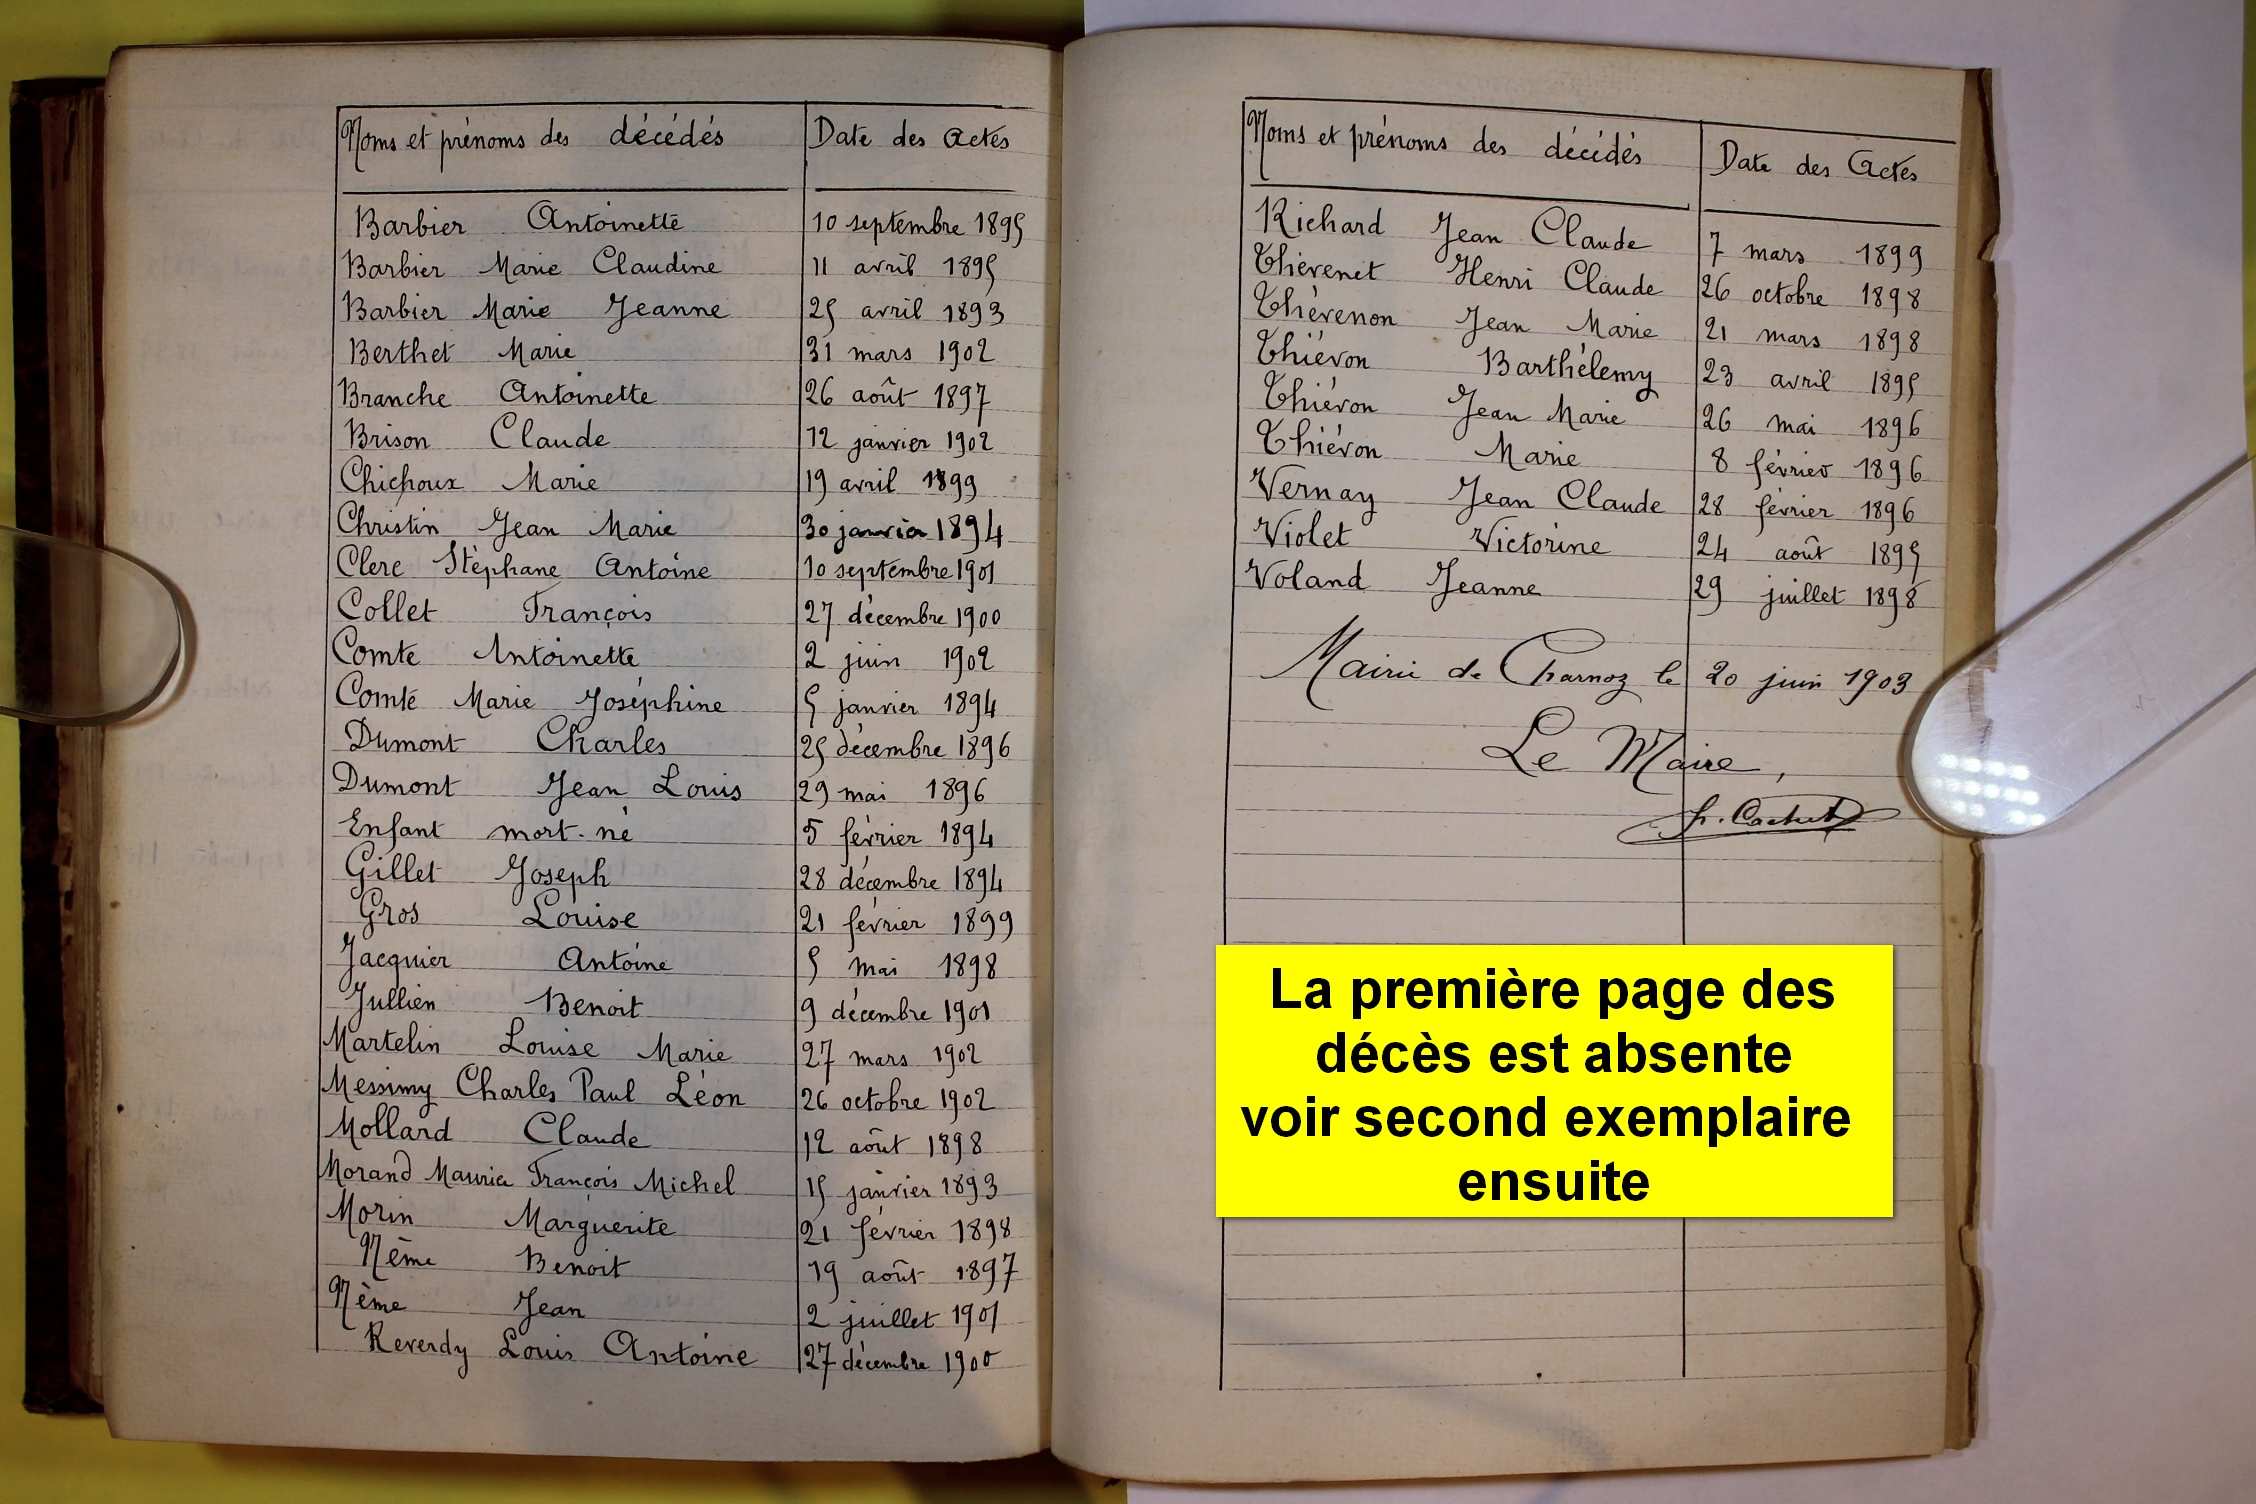 Noms et prénoms des décédés Date des Actes
Barbier Antoinette 10 septembre 1895
Barbier Marie Claudine 11 avril 1895
Barbier Marie Jeanne 25 avril 1893
Berthet Marie 31 mars 1902
Branche Antoinette 26 août 1897
Brison Claude 12 janvier 1902
Chichoux Marie 19 avril 1899
Christin Jean Marie 30 janvier 1894
Clerc Stéphane Antoine 10 septembre 1901
Collet François 27 décembre 1900
Comte Antoinette 2 juin 1902
Comte Marie Joséphine 5 janvier 1894
Dumont Charles 25 décembre 1896
Dumont Jean Louis 29 mai 1896
Enfant mort-né 5 février 1894
Gillet Joseph 28 décembre 1894
Gros Louise 21 février 1899
Jacquier Antoine 5 mai 1898
Jullien Benoit 9 décembre 1901
Martelin Louise Marie 27 mars 1902
Messimy Charles Paul Léon 26 octobre 1902
Mollard Claude 12 août 1898
Morand Maurice François Michel 15 janvier 1893
Morin Marguerite 21 février 1898
Nême Benoit 19 août 1897
Nême Jean 2 juillet 1901
Reverdy Louis Antoine 27 décembre 1900
Noms et prénoms des décédés Date des Actes
Richard Jean Claude 7 mars 1899
Thévenet Henri Claude 26 octobre 1898
Thévenon Jean Marie 21 mars 1898
Thiévon Barthélemy 23 avril 1895
Thiévon Jean Marie 26 mai 1896
Thiévon Marie 8 février 1896
Vernay Jean Claude 28 février 1896
Violet Victorine 24 août 1895
Voland Jeanne 29 juillet 1898
Mairie de Charnoz le 20 juin 1903
Le Maire,
La première page des
décès est absente
voir second exemplaire
ensuite